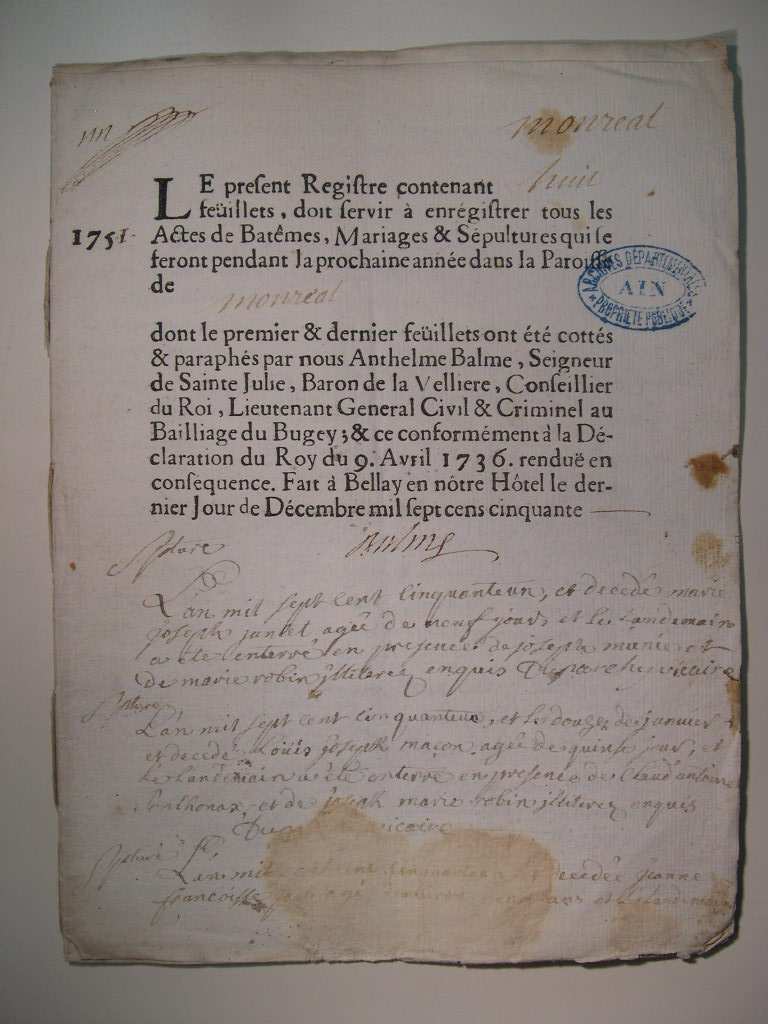 monreal
LE present Registre contenant huit
feüillets, doit servir à enrégistrer tous les
1751. Actes de Batêmes, Mariages & Sépultures qui se
feront pendant la prochaine année dans la Paroisse
de
monreal
ARCHIVES DÉPARTEMENTALES
AIN
PROPRIÉTÉ PUBLIQUE
dont le premier & dernier feüillets ont été cottés
& paraphés par nous Anthelme Balme, Seigneur
de Sainte Julie, Baron de la Velliere, Conseillier
du Roi, Lieutenant General Civil & Criminel au
Bailliage du Bugey; & ce conformément à la Dé-
claration du Roy du 9. Avril 1736. renduë en
conséquence. Fait à Bellay en nôtre Hôtel le der-
nier Jour de Décembre mil sept cens cinquante
Balme
L'an mil sept cent cinquanteun, et decedé marie
joseph jantet agée de neuf jours et le landemain
a été enterré en presence de joseph et
de marie robin illiterez enquis vicaire
L'an mil sept cent cinquanteun, et le douze de janvier
et decedé Loüis joseph maçon agée de quinse jour, et
le landemain a été enterré en presence de Claud antoine
et de joseph marie robin illiterez enquis
vicaire
L'an mil decedée jeanne
francoise et le landemain